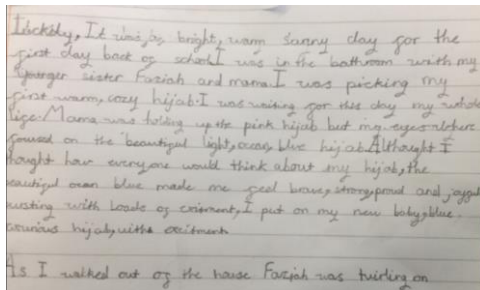 Luckily, It was a bright, warm sunny day for the
first day back of school. I was in the bathroom with my
younger sister Faziah and mama. I was picking my
first warm, cozy hijab. I was waiting for this day my whole
life. Mama was holding up the pink hijab but my eyes
focused on the beautiful light, ocean, blue hijab. Althought I
thought how everyone would think about my hijab, the
beautiful ocean blue made me feel brave, strong, proud and joyful
Busting with loads of I put on my new baby, blue
hijab, withe
As I walked out of the house Faziah was twirling on